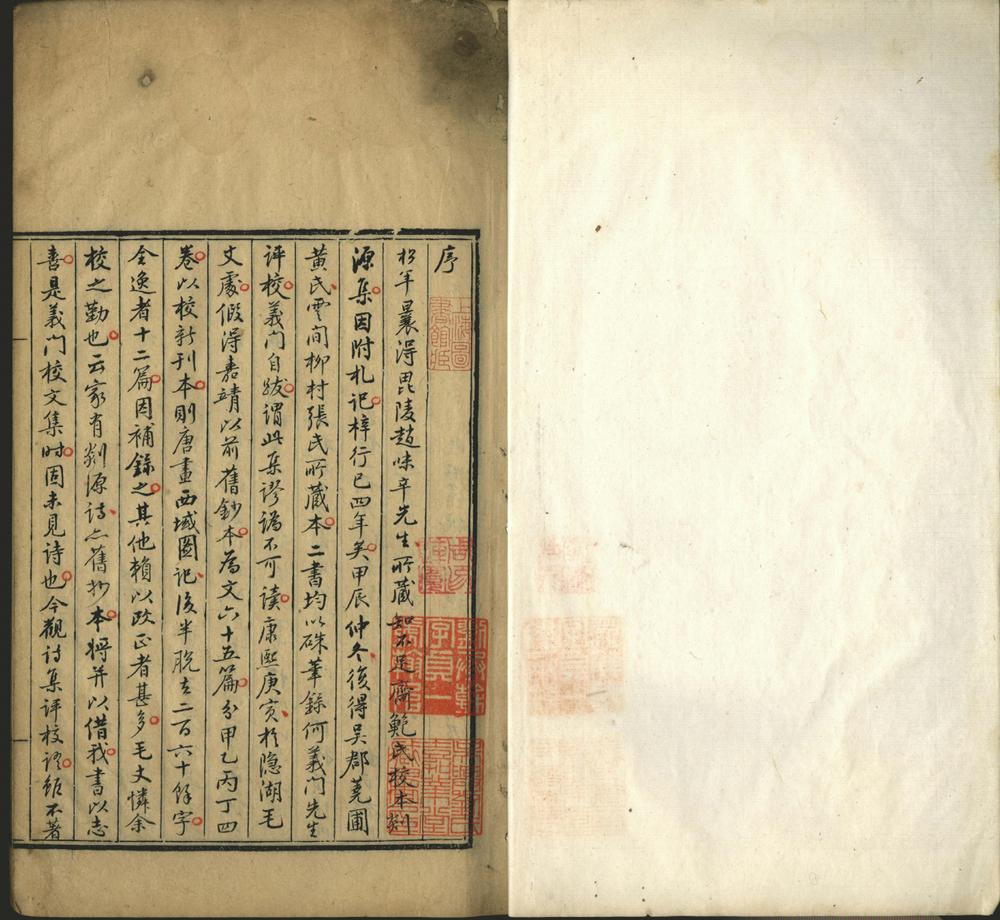 序
松年曩得毘陵趙味辛先生所藏知不足齋鮑氏校本剡
源集因附札記梓行已四年矣甲辰仲冬後得吴郡蕘圃
黄氏雲間柳村張氏所藏本二書均以硃筆錄何義門先生
評校義門自跋謂此集謬譌不可讀康熙庚寅於隐湖毛
丈處假得嘉靖以前舊鈔本爲文六十五篇分甲乙丙丁四
卷以校新刊本則唐畫西域圖記後半脱去二百六十餘字
全逸者十二篇因補錄之其他賴以改正者甚多毛丈憐余
校之勤也云家有剡源詩亦舊抄本将并以借我書以志
喜是義門校文集时固未見詩也今觀詩集評校語紙不著
上海圖書館藏